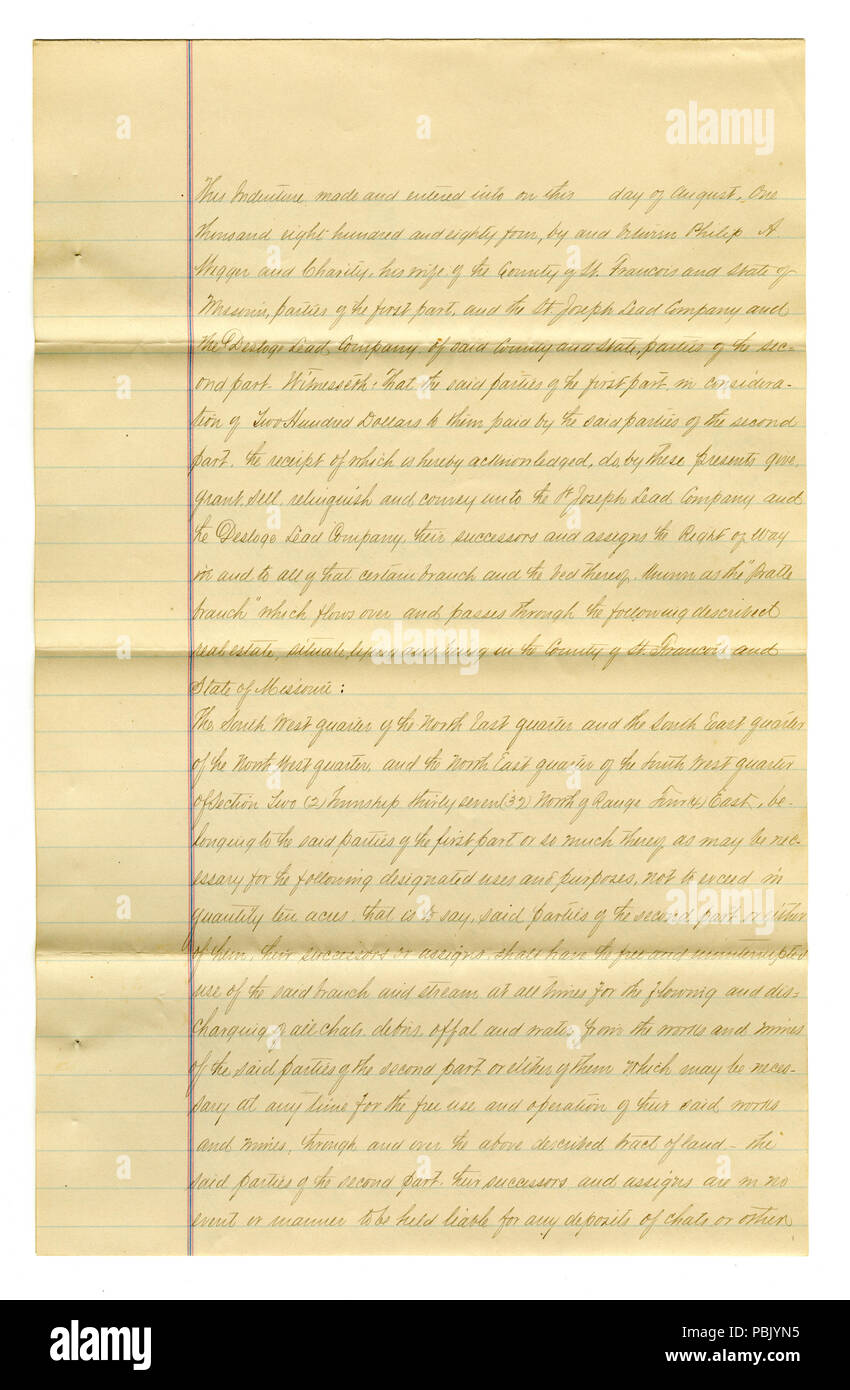 This Indenture made and entered into on this day of August, One
thousand eight hundred and eighty four, by and between Philip A
and Charity, his wife of the County of St. Francois and State of
Missouri, parties of the first part, and the St Joseph Lead Company and
the Desloge Lead Company of said County and State, parties of the sec-
ond part. Witnesseth: That the said parties of the first part, in considera-
tion of Two Hundred Dollars to them paid by the said parties of the second
part, the receipt of which is hereby acknowledged, do, by these presents give,
grant, sell, relinquish and convey unto the St Joseph Lead Company and
the Desloge Lead Company, their successors and assigns the Right of Way
in and to all of that certain branch and the bed thereof, Known as the "Pratte
branch" which flows over and passes through the following described
real estate, situate, lying and being in the County of St. Francois and
State of Missouri:
The South West quarter of the North East quarter and the South East quarter
of the North West quarter, and the North East quarter of the South West quarter
of Section Two (2) Township thirty seven (37) North of Range Four (4) East, be-
longing to the said parties of the first part or so much thereof as may be nec-
essary for the following designated uses and purposes, not to exceed in
quantity ten acres. that is to say, said parties of the second part or either
of them, their successors or assigns, shall have the free and uninterrupted
use of the said branch and stream at all times for the flowing and dis-
charging of all chats, debris, offal and water from the works and mines
of the said parties of the second part or either of them which may be neces-
sary at any time for the free use and operation of their said works
and mines, through and over the above described tract of land - the
said parties of the second part, their successors and assigns are in no
event or manner to be held liable for any deposits of chats or other
alamy
Image ID: PBJYN5
www.alamy.com